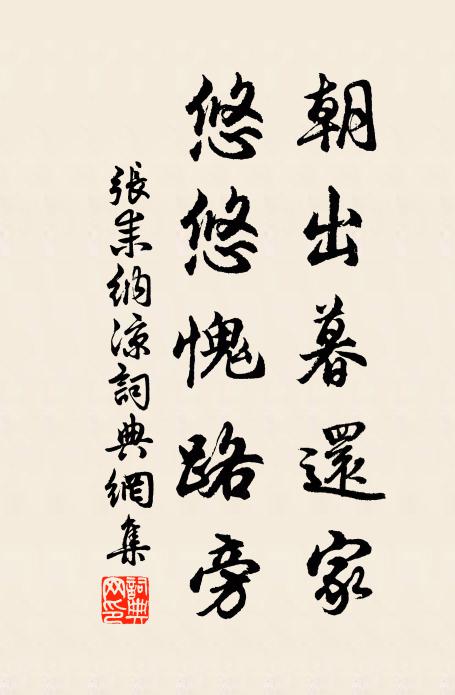 朝出暮還家
悠悠愧路旁
張耒納涼詞典網集
詞典網印